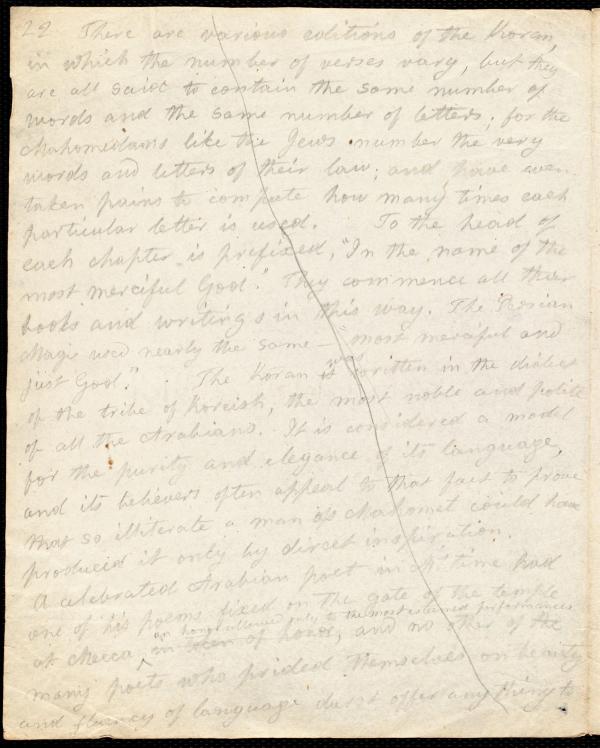 29 There are various editions of the Koran,
in which the number of verses vary, but they
are all said to contain the same number of
words and the same number of letters; for the
Mahomedans like the Jews number the very
words and letters of their law; and have even
taken pains to compute how many times each
particular letter is used. To the head of
each chapter is prefixed, "In the name of the
most merciful God." They commence all their
books and writings in this way. The Persian
Magi used nearly the same — "most merciful and
just God." The Koran is was written in the dialect
of the tribe of Koreish, the most noble and polite
of all the Arabians. It is considered a model
for the purity and elegance of its language,
and its believers often appeal to that fact to prove
that so illiterate a man as Mahomet could have
produced it only by direct inspiration.
A celebrated Arabian poet in M's time had
one of his poems fixed on the gate of the temple
an honor allowed only to the most esteemed performances
at Mecca, in token of honor, and no other of the
many poets who prided themselves on beauty
and fluency of language durst offer anything to